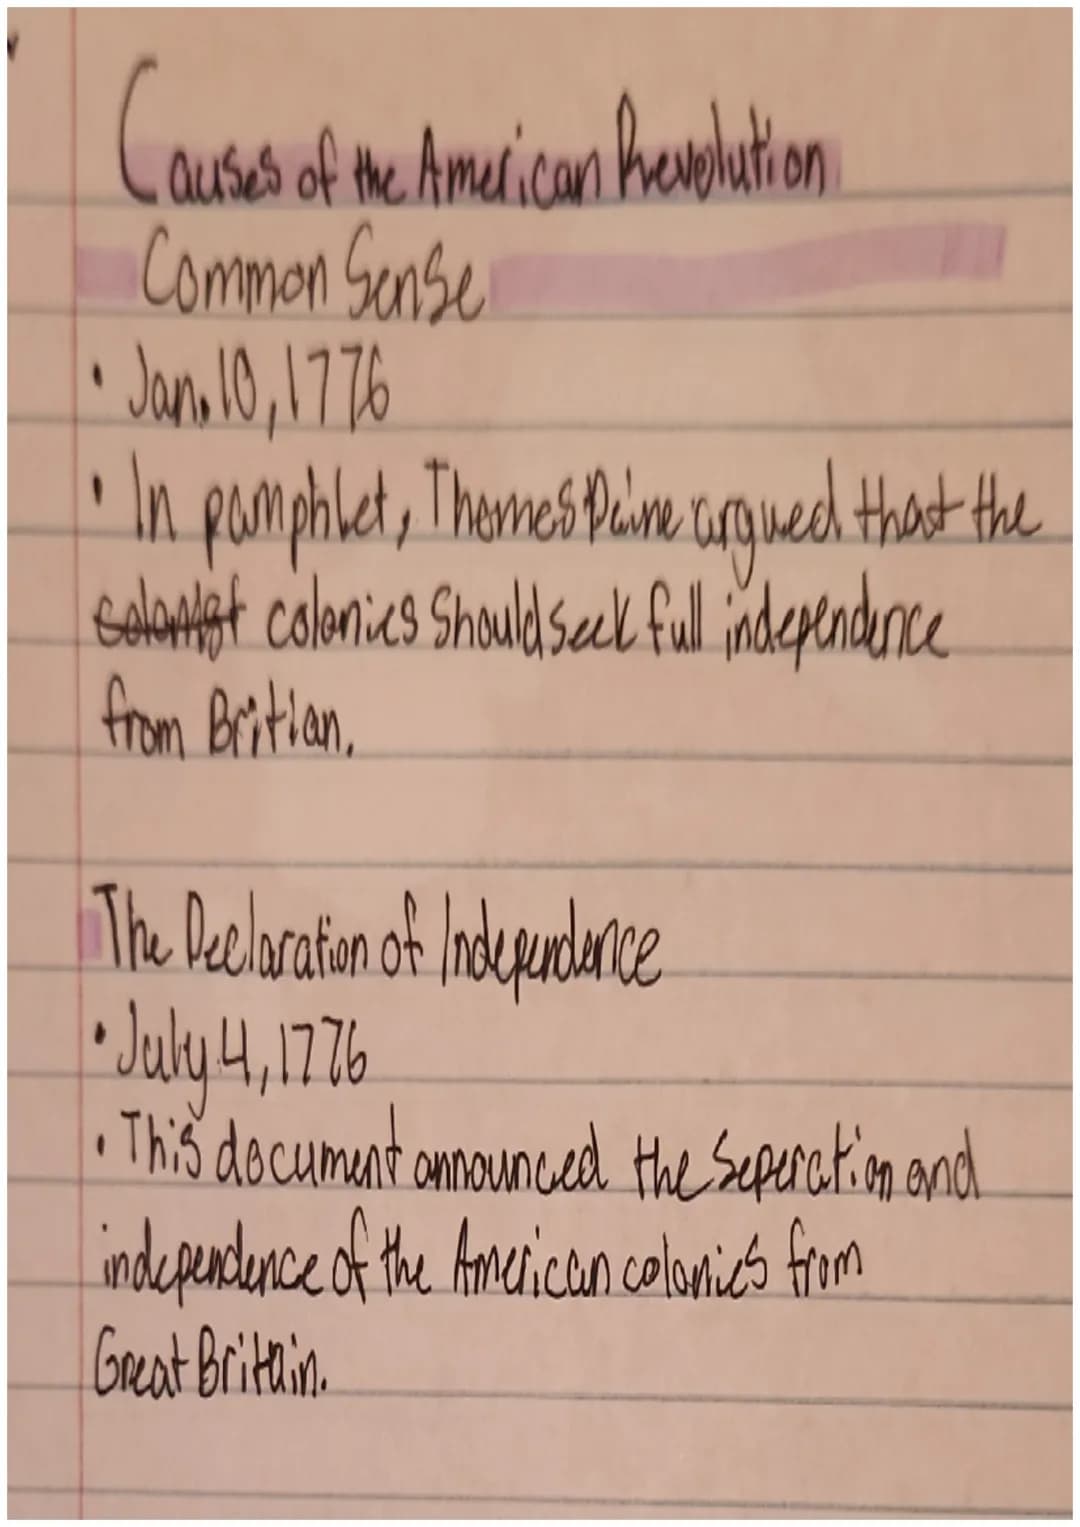 Causes of the American Revolution
Common Sense
• Jan. 10, 1776
• In pamphlet, Thomes Paine argued that the
colonist colonies Should seek full independence
from Britian.
The Declaration of Independence
• July 4, 1776
• This document announced the Seperation and
independence of the American colonies from
Great Britain.